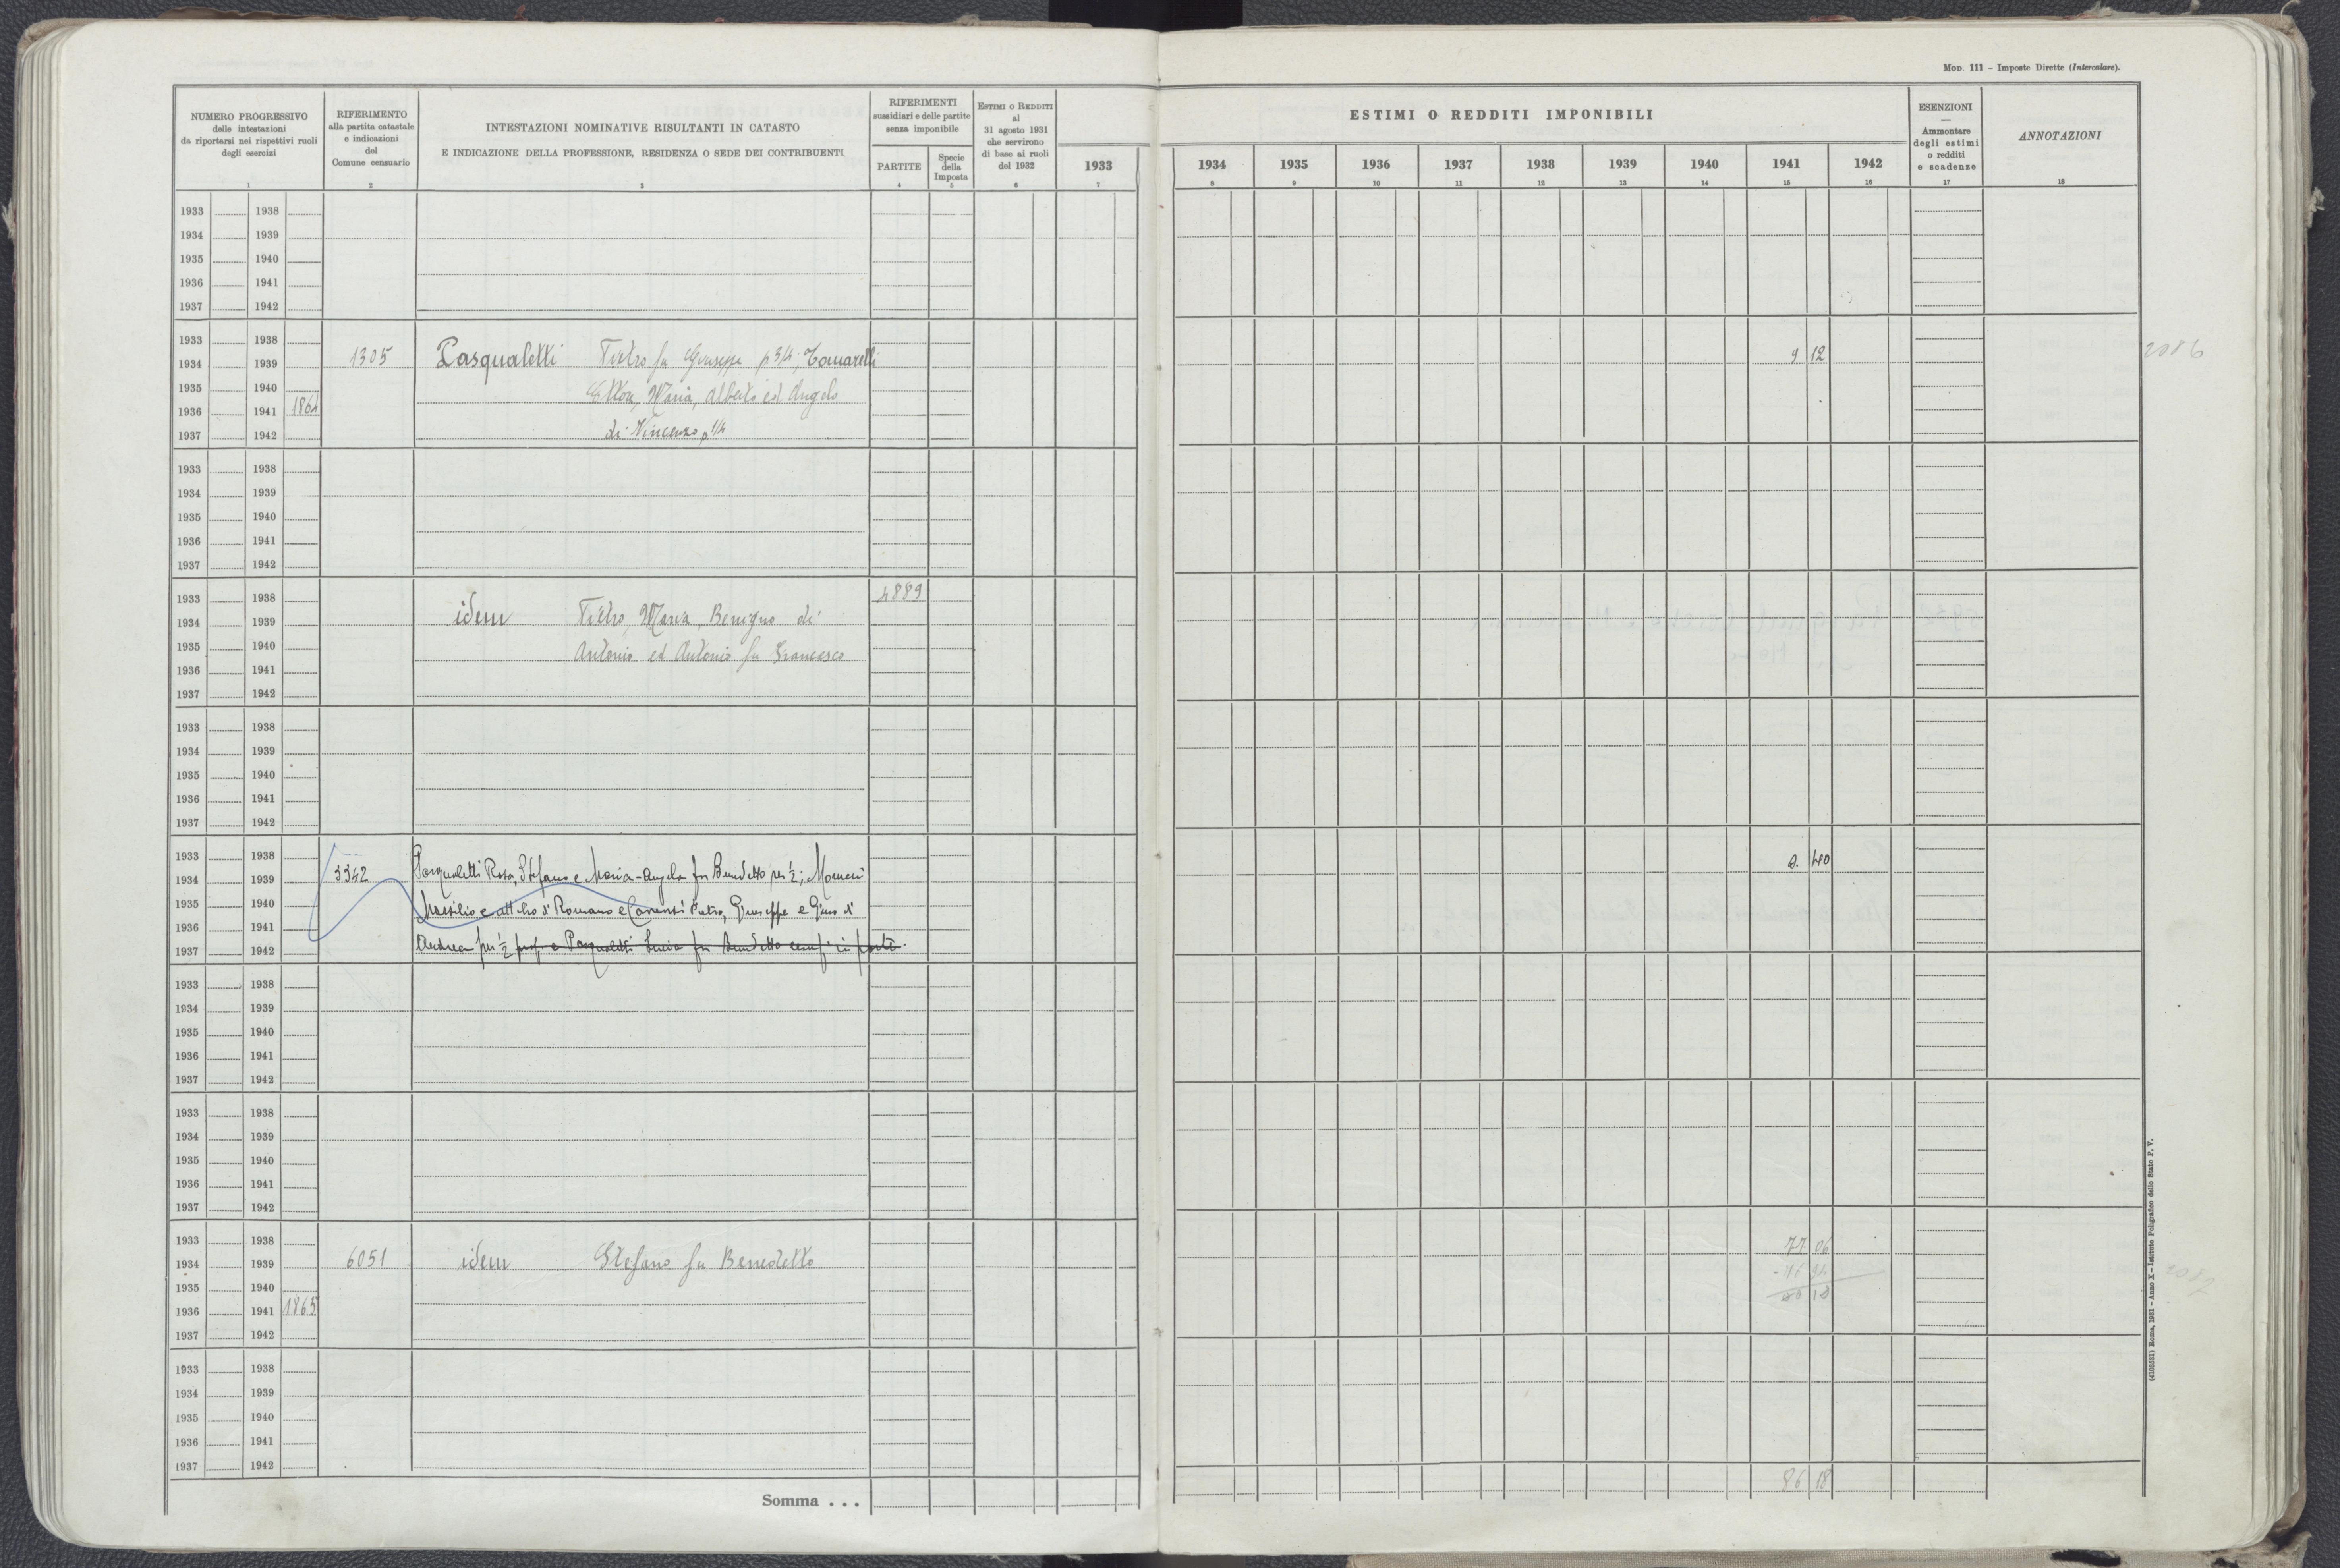 MOD. 111 – Imposte Dirette (Intercalare).
NUMERO PROGRESSIVO
delle intestazioni
da riportarsi nei rispettivi ruoli
degli esercizi
1
RIFERIMENTO
alla partita catastale
e indicazioni
del
Comune censuario
2
INTESTAZIONI NOMINATIVE RISULTANTI IN CATASTO
E INDICAZIONE DELLA PROFESSIONE, RESIDENZA O SEDE DEI CONTRIBUENTI
3
RIFERIMENTI
sussidiari e delle partite
senza imponibile
PARTITE
4
Specie
della
Imposta
5
ESTIMI O REDDITI
al
31 agosto 1931
che servirono
di base ai ruoli
del 1932
6
ESTIMI O REDDITI IMPONIBILI
1933 1934 1935 1936 1937 1938 1939 1940 1941 1942
7 8 9 10 11 12 13 14 15 16
ESENZIONI
—
Ammontare
degli estimi
o redditi
e scadenze
17
ANNOTAZIONI
18
1933 1938
1934 1939
1935 1940
1936 1941
1937 1942
1933 1938
1934 1939 1305 Pasqualetti Pietro fu Giuseppe p 3/4; Tomarelli 9 12 2086
1935 1940 Ettore, Maria, Alberto ed Angelo
1936 1941 1864
1937 1942 di Vincenzo p 1/4
1933 1938
1934 1939
1935 1940
1936 1941
1937 1942
1933 1938 4889
1934 1939 idem Pietro, Maria, Benigno di
1935 1940 Antonio ed Antonio fu Francesco
1936 1941
1937 1942
1933 1938
1934 1939
1935 1940
1936 1941
1937 1942
1933 1938 40
1934 1939 3342 Pasqualetti Rosa, Stefano e Maria-Angela fu Benedetto per ½;
1935 1940 e Attilio di Romano e Pietro, Giuseppe e Gino di
1936 1941
1937 1942 Andrea per ½ prop. e Pasqualetti Lucia fu Benedetto usuf. in parte.
1933 1938
1934 1939
1935 1940
1936 1941
1937 1942
1933 1938
1934 1939
1935 1940
1936 1941
1937 1942
1933 1938 77 06
1934 1939 6051 idem Stefano fu Benedetto
1935 1940
1936 1941 1865
1937 1942
1933 1938
1934 1939
1935 1940
1936 1941
1937 1942
Somma . . . 86 18
(4103881) Roma, 1931 – Anno X – Istituto Poligrafico dello Stato P. V.